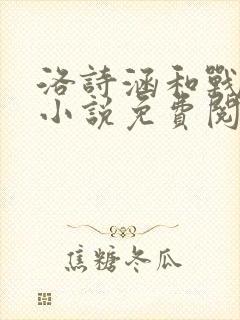 洛詩涵和戰
小說免費閱
焦糖冬瓜